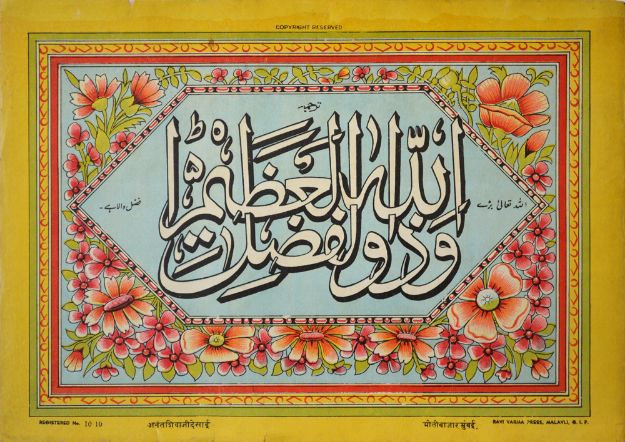 COPYRIGHT RESERVED
ترجمہ۔
والله ذو الفضل العظيم
اللہ تعالیٰ بڑے
فضل والا ہے۔
REGISTERED No. 10 10
अनंतशिवाजीदेसाई
मोतीबाजार मुंबई.
RAVI VARMA PRESS, MALAVLI, G. I. P.